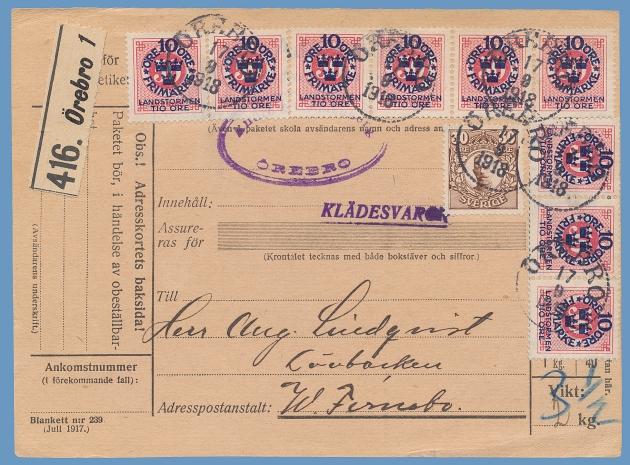 416. Örebro 1
för
etiket
10 ÖRE FRIMÄRKE LANDSTORMEN TIO ÖRE
10 ÖRE FRIMÄRKE LANDSTORMEN TIO ÖRE
10 ÖRE FRIMÄRKE LANDSTORMEN TIO ÖRE
10 ÖRE FRIMÄRKE LANDSTORMEN TIO ÖRE
10 ÖRE FRIMÄRKE LANDSTORMEN TIO ÖRE
10 ÖRE FRIMÄRKE LANDSTORMEN TIO ÖRE
10 ÖRE FRIMÄRKE LANDSTORMEN TIO ÖRE
10 ÖRE FRIMÄRKE LANDSTORMEN TIO ÖRE
10 ÖRE FRIMÄRKE LANDSTORMEN TIO ÖRE
30
SVERIGE
ÖREBRO
17
9
1918
(Även å paketet skola avsändarens namn och adress an
ÖREBRO
Obs.! Adresskortets baksida!
Paketet bör, i händelse av obeställbar-
(Avsändarens underskrift.)
Innehåll:
KLÄDESVAROR
Assure-
ras för
(Krontalet tecknas med både bokstäver och siffror.)
Till
Herr Aug. Lindqvist
Lövbacken
Adresspostanstalt: W. Fernebo.
Ankomstnummer
(i förekommande fall):
Blankett n:r 239
(Juli 1917.)
1 kg.
Vikt:
kg.